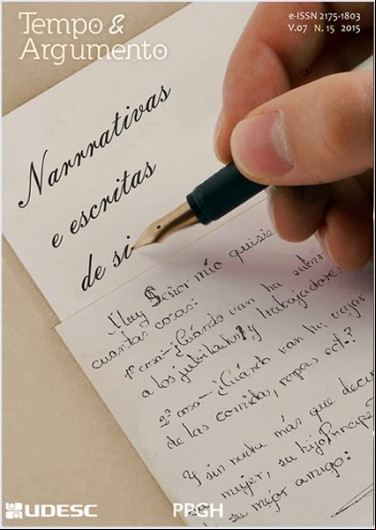 Tempo &
Argumento
e-ISSN 2175-1803
V.07 N. 15 2015
Narrrativas
e escritas
de si
Muy Señor mío quisie
cuantas cosas:
1ª cosa-¿Cuándo van ha
a los jubilados y trabajadores
2ª cosa-¿Cuándo van ha vajar
de las comidas, ropas ect.?
Y sin nada más que
mujer, su hijo Principe
su mejor amigo:
UDESC
PPGH